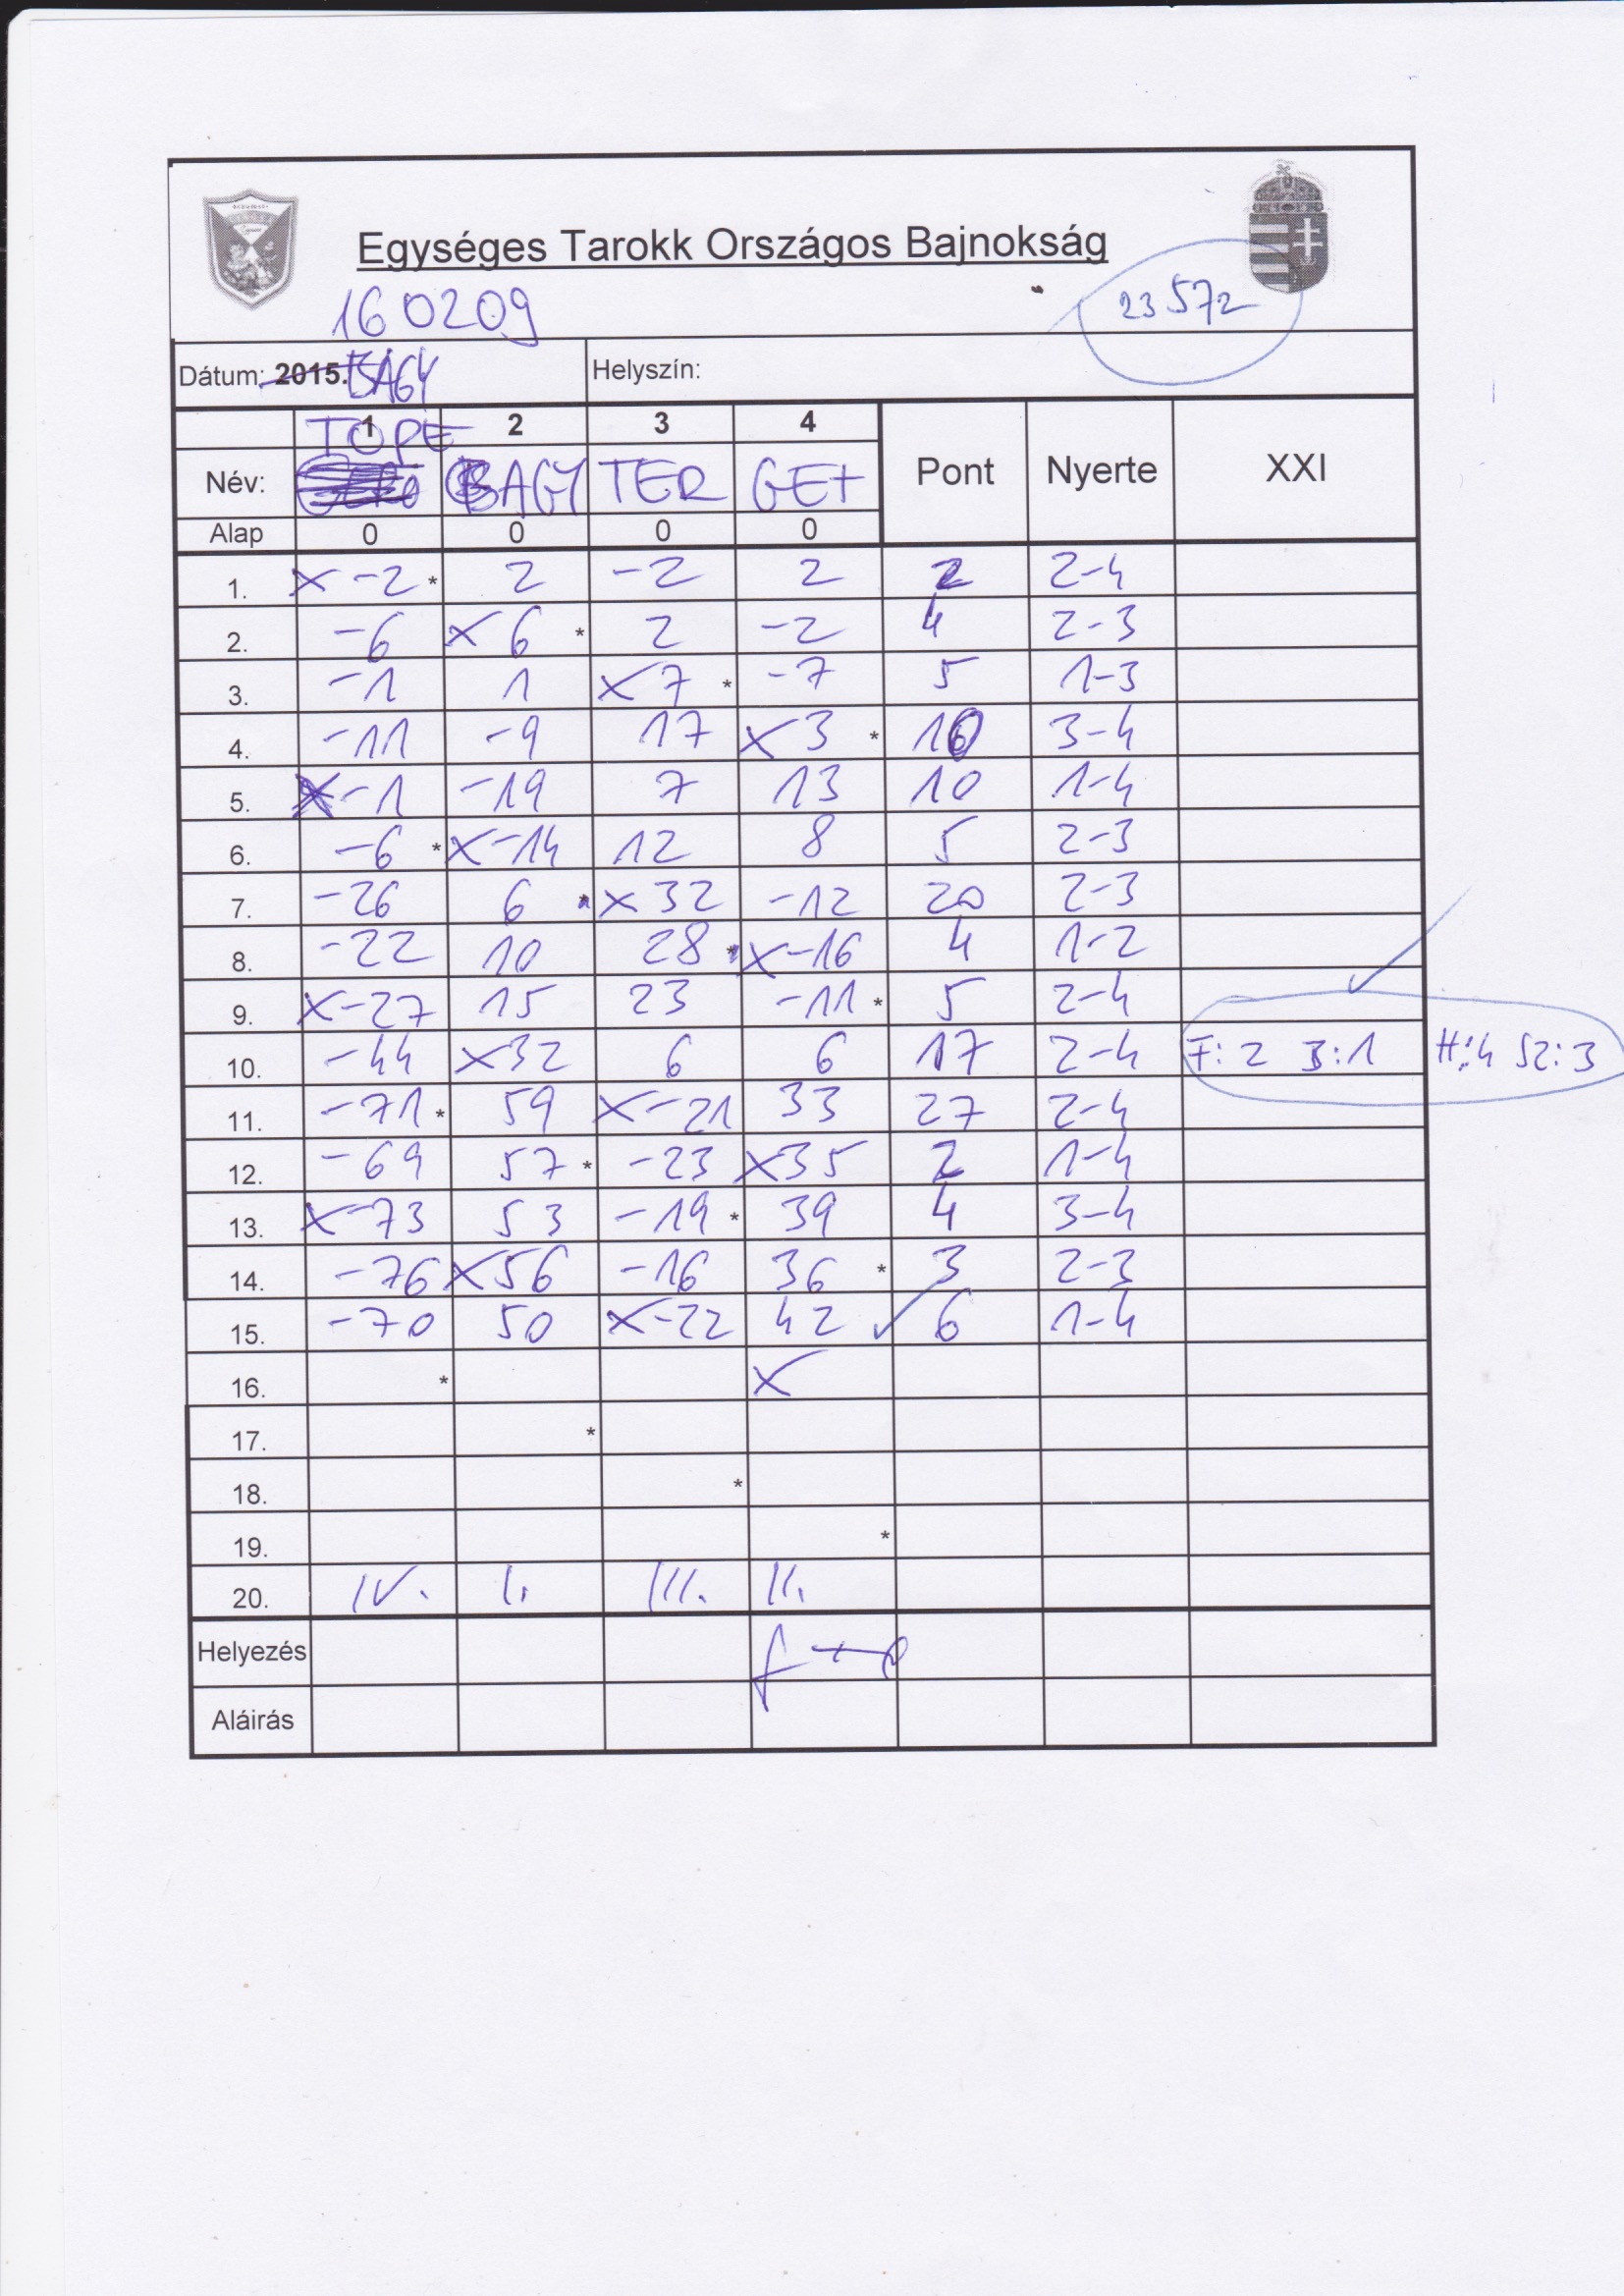 Egységes Tarokk Országos Bajnokság
160209
23572
Dátum: 2015. BAGY Helyszín:
1 2 3 4 Pont Nyerte XXI
TOPE
Név: BAGY TER GET
Alap 0 0 0 0
1. x -2 * 2 -2 2 2 2-4
2. -6 x 6 * 2 -2 4 2-3
3. -1 1 x 7 * -7 5 1-3
4. -11 -9 17 x 3 * 10 3-4
5. x -1 -19 7 13 10 1-4
6. -6 * x -14 12 8 5 2-3
7. -26 6 * x 32 -12 20 2-3
8. -22 10 28 * x -16 4 1-2
9. x -27 15 23 -11 * 5 2-4
10. -44 x 32 6 6 17 2-4 F: 2 3:1 H:4 SZ: 3
11. -71 * 59 x -21 33 27 2-4
12. -69 57 * -23 x 35 2 1-4
13. x -73 53 -19 * 39 4 3-4
14. -76 x 56 -16 36 * 3 2-3
15. -70 50 x -22 42 ✓ 6 1-4
16. * x
17. *
18. *
19. *
20. IV. I. III. II.
Helyezés
Aláirás